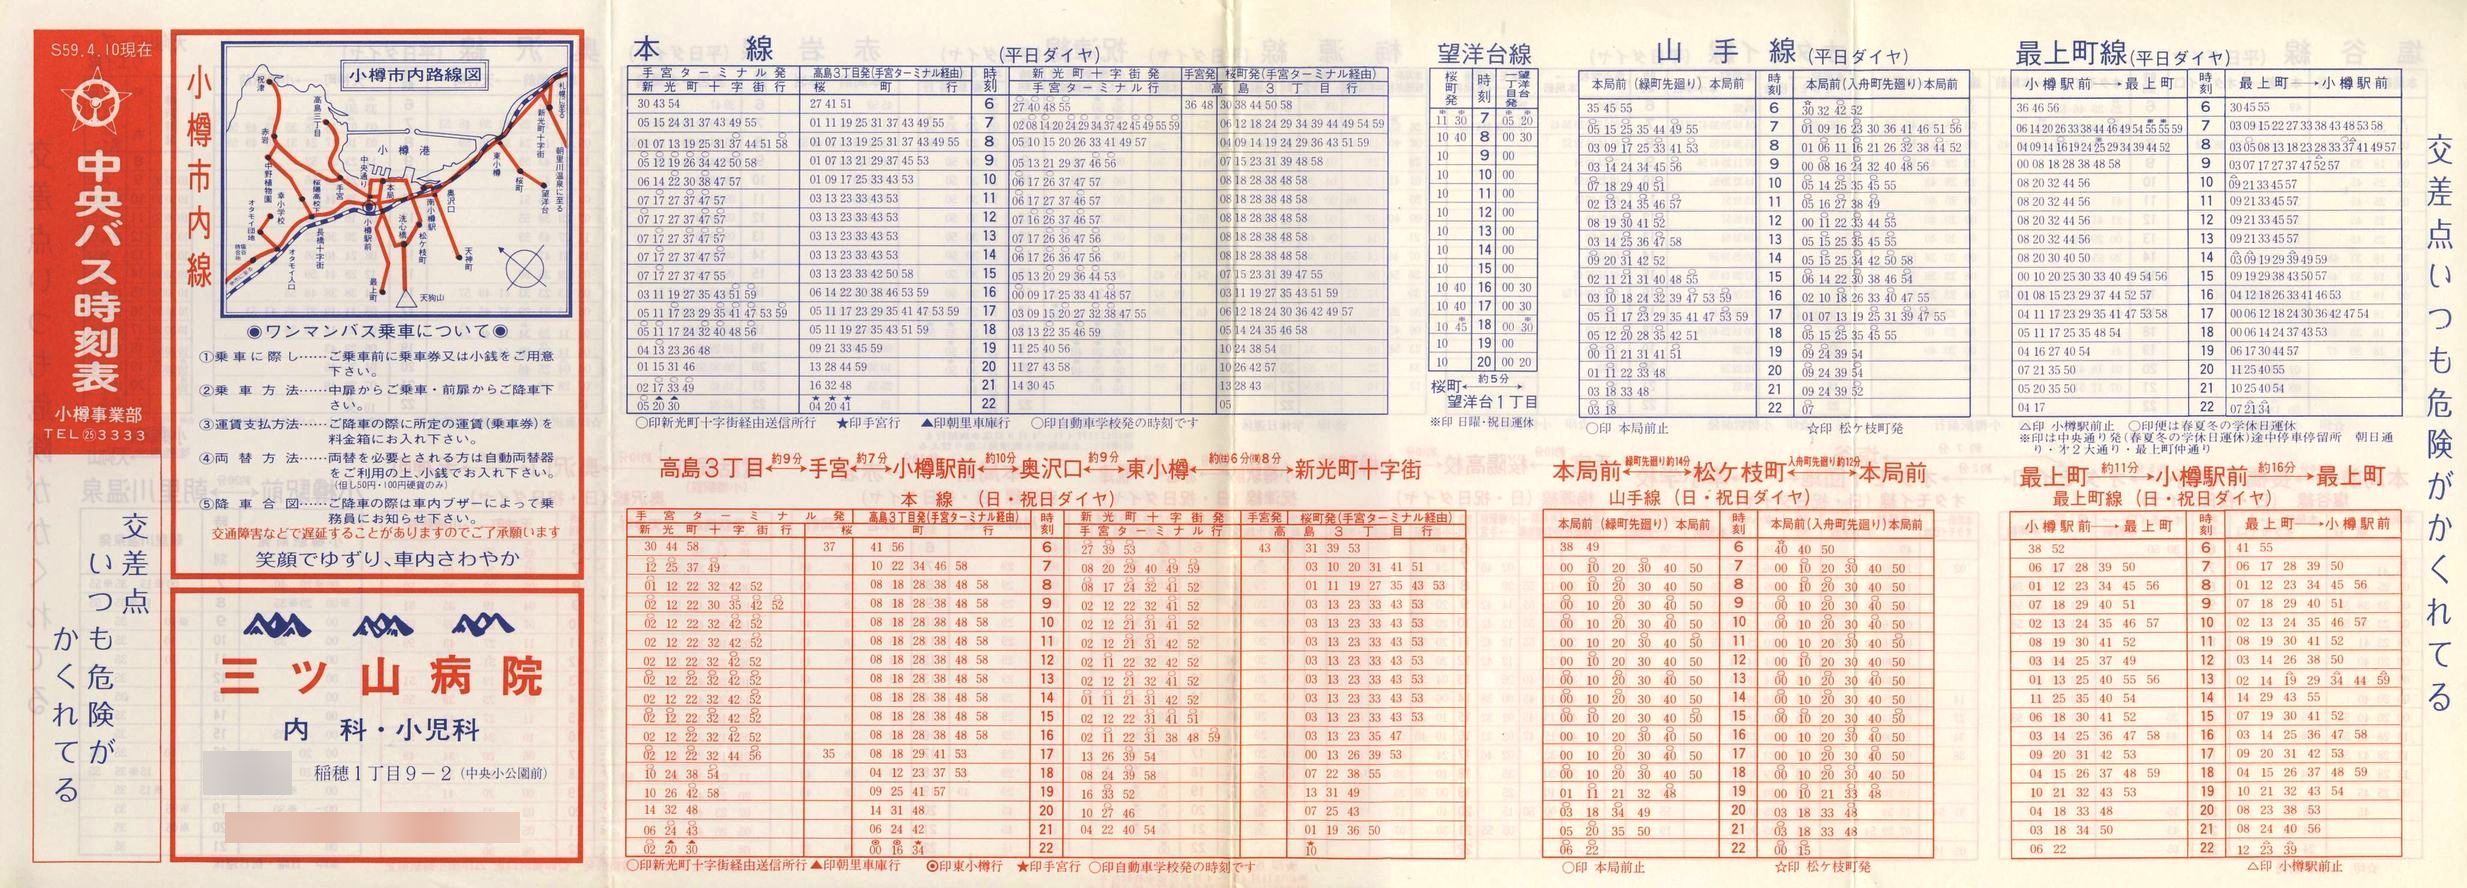 S59.4.10現在
中央バス時刻表
小樽事業部
TEL㉕3333
交差点
いつも危険が
かくれてる
小樽市内線
小樽市内路線図
祝津
高島三丁目
赤岩
小樽港
手宮
本局
小樽駅前
最上町
天狗山
天神町
松ケ枝町
洗心橋
奥沢口
南小樽駅
東小樽
桜町
望洋台
新光町十字街
朝里川温泉に至る
長橋十字街
オタモイ入口
オタモイ団地
幸小学校
◉ワンマンバス乗車について◉
①乗車に際し……ご乗車前に乗車券又は小銭をご用意
下さい。
②乗車方法……中扉からご乗車・前扉からご降車下
さい。
③運賃支払方法……ご降車の際に所定の運賃(乗車券)を
料金箱にお入れ下さい。
④両替方法……両替を必要とされる方は自動両替器
をご利用の上、小銭でお入れ下さい。
(但し50円・100円硬貨のみ)
⑤降車合図……ご降車の際は車内ブザーによって乗
務員にお知らせ下さい。
交通障害などで遅延することがありますのでご了承願います
笑顔でゆずり、車内さわやか
三ツ山病院
内科・小児科
稲穂1丁目9−2(中央小公園前)
本線(平日ダイヤ)
手宮ターミナル発 高島3丁目発(手宮ターミナル経由) 時刻 新光町十字街発 手宮発 桜町発(手宮ターミナル経由)
新光町十字街行 桜町行 手宮ターミナル行 高島3丁目行
30 43 54 27 41 51 6 27 40 48 55 36 48 30 38 44 50 58
05 15 24 31 37 43 49 55 01 11 19 25 31 37 43 49 55 7 02 08 14 20 24 29 34 37 42 45 49 55 59 06 12 18 24 29 34 39 44 49 54 59
01 07 13 19 25 31 37 44 51 58 01 07 13 19 25 31 37 43 49 55 8 05 10 15 20 26 33 41 49 57 04 09 14 19 24 29 36 43 51 59
05 12 19 26 34 42 50 58 01 07 13 21 29 37 45 53 9 05 13 21 29 37 46 56 07 15 23 31 39 48 58
06 14 22 30 38 47 57 01 09 17 25 33 43 53 10 06 17 26 37 47 57 08 18 28 38 48 58
07 17 27 37 47 57 03 13 23 33 43 53 11 06 17 27 37 46 57 08 18 28 38 48 58
07 17 27 37 47 57 03 13 23 33 43 53 12 07 16 26 37 46 57 08 18 28 38 48 58
07 17 27 37 47 57 03 13 23 33 43 53 13 07 17 26 36 47 56 08 18 28 38 48 58
07 17 27 37 47 57 03 13 23 33 43 53 14 06 17 26 36 47 56 08 18 28 38 48 58
07 17 27 37 47 55 03 13 23 33 42 50 58 15 05 13 20 29 36 44 53 07 15 23 31 39 47 55
03 11 19 27 35 43 51 59 06 14 22 30 38 46 53 59 16 00 09 17 25 33 41 48 57 03 11 19 27 35 43 51 59
05 11 17 23 29 35 41 47 53 59 05 11 17 23 29 35 41 47 53 59 17 03 09 15 20 27 32 38 47 55 06 12 18 24 30 36 42 49 57
05 11 17 24 32 40 48 56 05 11 19 27 35 43 51 18 03 13 22 35 46 59 05 14 24 35 46 58
04 13 23 36 48 09 21 33 45 59 19 11 25 40 56 10 24 38 54
01 15 31 46 13 28 44 59 20 11 27 43 58 10 26 42 57
02 17 33 49 16 32 48 21 14 30 45 13 28 43
05 20 30 04 20 41 22 05
○印新光町十字街経由送信所行 ★印手宮行 ▲印朝里車庫行 ○印自動車学校発の時刻です
高島3丁目←約9分→手宮←約7分→小樽駅前←約10分→奥沢口←約9分→東小樽←約㈯6分㈰8分→新光町十字街
本線(日・祝日ダイヤ)
手宮ターミナル発 高島3丁目発(手宮ターミナル経由) 時刻 新光町十字街発 手宮発 桜町発(手宮ターミナル経由)
新光町十字街行 桜町行 手宮ターミナル行 高島3丁目行
30 44 58 37 41 56 6 27 39 53 43 31 39 53
12 25 37 49 10 22 34 46 58 7 08 20 29 40 49 59 03 10 20 31 41 51
01 12 22 32 42 52 08 18 28 38 48 58 8 08 17 24 32 41 52 01 11 19 27 35 43 53
02 12 22 30 35 42 52 08 18 28 38 48 58 9 02 12 22 32 41 52 03 13 23 33 43 53
02 12 22 32 42 52 08 18 28 38 48 58 10 02 12 21 31 42 52 03 13 23 33 43 53
02 12 22 32 42 52 08 18 28 38 48 58 11 02 12 21 31 42 52 03 13 23 33 43 53
02 12 22 32 42 52 08 18 28 38 48 58 12 02 11 22 32 42 52 03 13 23 33 43 53
02 12 22 32 42 52 08 18 28 38 48 58 13 02 12 22 32 41 52 03 13 23 33 43 53
02 12 22 32 42 52 08 18 28 38 48 58 14 01 11 21 31 42 52 03 13 23 33 43 53
02 12 22 32 42 52 08 18 28 38 48 58 15 02 12 22 31 41 51 03 13 23 33 43 53
02 12 22 32 42 52 08 18 28 38 48 58 16 02 11 22 31 38 48 59 03 13 23 35 47
02 12 22 32 44 56 35 08 18 29 41 53 17 13 26 39 54 00 13 26 39 53
10 24 38 54 04 12 23 37 53 18 08 24 39 58 07 22 38 55
10 26 42 58 09 25 41 57 19 16 33 52 13 31 49
14 32 48 14 31 48 20 10 27 46 07 25 43
06 24 43 06 24 42 21 04 22 40 54 01 19 36 50
02 20 30 00 16 34 22 10
○印新光町十字街経由送信所行 ▲印朝里車庫行 ◉印東小樽行 ★印手宮行 ○印自動車学校発の時刻です
望洋台線
桜町発 時刻 望洋台一丁目発
11 30 7 05 20
10 40 8 00 30
10 9 00
10 10 00
10 11 00
10 12 00
10 13 00
10 14 00
10 15 00
10 40 16 00 30
10 40 17 00 30
10 45 18 00 30
10 19 00
10 20 00 20
桜町←約5分→望洋台1丁目
※印 日曜・祝日運休
山手線(平日ダイヤ)
本局前(緑町先廻り)本局前 時刻 本局前(入舟町先廻り)本局前
35 45 55 6 30 32 42 52
05 15 25 35 44 49 55 7 01 09 16 23 30 36 41 46 51 56
03 09 17 25 33 41 53 8 01 06 11 16 21 26 32 38 44 52
03 14 24 34 45 56 9 00 08 16 24 32 40 48 56
07 18 29 40 51 10 05 14 25 35 45 55
02 13 24 35 46 57 11 05 16 27 38 49
08 19 30 41 52 12 00 11 22 33 44 55
03 14 25 36 47 58 13 05 15 25 35 45 55
09 20 31 42 52 14 05 15 25 34 42 50 58
02 11 21 31 40 48 55 15 06 14 22 30 38 46 54
03 10 18 24 32 39 47 53 59 16 02 10 18 26 33 40 47 55
05 11 17 23 29 35 41 47 53 59 17 01 07 13 19 25 31 39 47 55
05 12 20 28 35 42 51 18 05 15 25 35 45 55
00 11 21 31 41 51 19 09 24 39 54
01 11 22 33 48 20 09 24 39 54
03 18 33 48 21 09 24 39 52
03 18 22 07
○印 本局前止 ☆印 松ケ枝町発
本局前←緑町先廻り約14分→松ケ枝町←入舟町先廻り約12分→本局前
山手線(日・祝日ダイヤ)
本局前(緑町先廻り)本局前 時刻 本局前(入舟町先廻り)本局前
38 49 6 40 40 50
00 10 20 30 40 50 7 00 10 20 30 40 50
00 10 20 30 40 50 8 00 10 20 30 40 50
00 10 20 30 40 50 9 00 10 20 30 40 50
00 10 20 30 40 50 10 00 10 20 30 40 50
00 10 20 30 40 50 11 00 10 20 30 40 50
00 10 20 30 40 50 12 00 10 20 30 40 50
00 10 20 30 40 50 13 00 10 20 30 40 50
00 10 20 30 40 50 14 00 10 20 30 40 50
00 10 20 30 40 50 15 00 10 20 30 40 50
00 10 20 30 40 50 16 00 10 20 30 40 50
00 10 20 30 40 50 17 00 10 20 30 40 50
00 10 20 30 40 50 18 00 10 20 30 40 50
01 11 21 32 48 19 00 10 21 33 48
03 18 34 49 20 03 18 33 48
05 20 35 50 21 03 18 33 48
06 22 22 00 15
○印 本局前止 ☆印 松ケ枝町発
最上町線(平日ダイヤ)
小樽駅前→最上町 時刻 最上町→小樽駅前
36 46 56 6 30 45 55
06 14 20 26 33 38 44 46 49 54 55 55 59 7 03 09 15 22 27 33 38 43 48 53 58
04 09 14 16 19 24 25 29 34 39 44 52 8 03 05 08 13 18 23 28 33 37 41 49 57
00 08 18 28 38 48 58 9 03 07 17 27 37 47 52 57
08 20 32 44 56 10 09 21 33 45 57
08 20 32 44 56 11 09 21 33 45 57
08 20 32 44 56 12 09 21 33 45 57
08 20 32 44 56 13 09 21 33 45 57
08 20 30 40 50 14 03 09 19 29 39 49 59
00 10 20 25 30 33 40 49 54 56 15 09 19 29 38 43 50 57
01 08 15 23 29 37 44 52 57 16 04 12 18 26 33 41 46 53
04 11 17 23 29 35 41 47 53 58 17 00 06 12 18 24 30 36 42 47 54
05 11 17 25 35 48 54 18 00 06 14 24 37 43 53
04 16 27 40 54 19 06 17 30 44 57
07 21 35 50 20 11 25 40 55
05 20 35 50 21 10 25 40 54
04 17 22 07 21 34
△印 小樽駅前止 ○印便は春夏冬の学休日運休
※印は中央通り発(春夏冬の学休日運休)途中停車停留所 朝日通
り・オ2大通り・最上町仲通り
最上町←約11分→小樽駅前←約16分→最上町
最上町線(日・祝日ダイヤ)
小樽駅前→最上町 時刻 最上町→小樽駅前
38 52 6 41 55
06 17 28 39 50 7 06 17 28 39 50
01 12 23 34 45 56 8 01 12 23 34 45 56
07 18 29 40 51 9 07 18 29 40 51
02 13 24 35 46 57 10 02 13 24 35 46 57
08 19 30 41 52 11 08 19 30 41 52
03 14 25 37 49 12 03 14 26 38 50
01 13 25 40 55 56 13 02 14 19 29 34 44 59
11 25 35 40 54 14 14 29 43 55
06 18 30 41 52 15 07 19 30 41 52
03 14 25 36 47 58 16 03 14 25 36 47 58
09 20 31 42 53 17 09 20 31 42 53
04 15 26 37 48 59 18 04 15 26 37 48 59
10 21 32 43 53 19 10 21 32 43 54
04 18 33 48 20 08 23 38 53
03 18 34 50 21 08 24 40 56
06 22 22 12 23 39
△印 小樽駅前止
交差点いつも危険がかくれてる